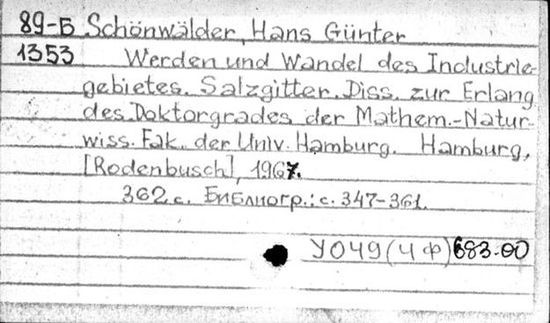 89-Б Schönwälder, Hans Günter
1353 Werden und Wandel des Industrie-
gebietes. Salzgitter. Diss. zur Erlang
des Doktorgrades der Mathem.-Natur-
wiss. Fak. der Univ. Hamburg. Hamburg,
[Rodenbusch], 1967.
362 с. Библиогр.: с. 347-361.
У049(4Ф)683.00